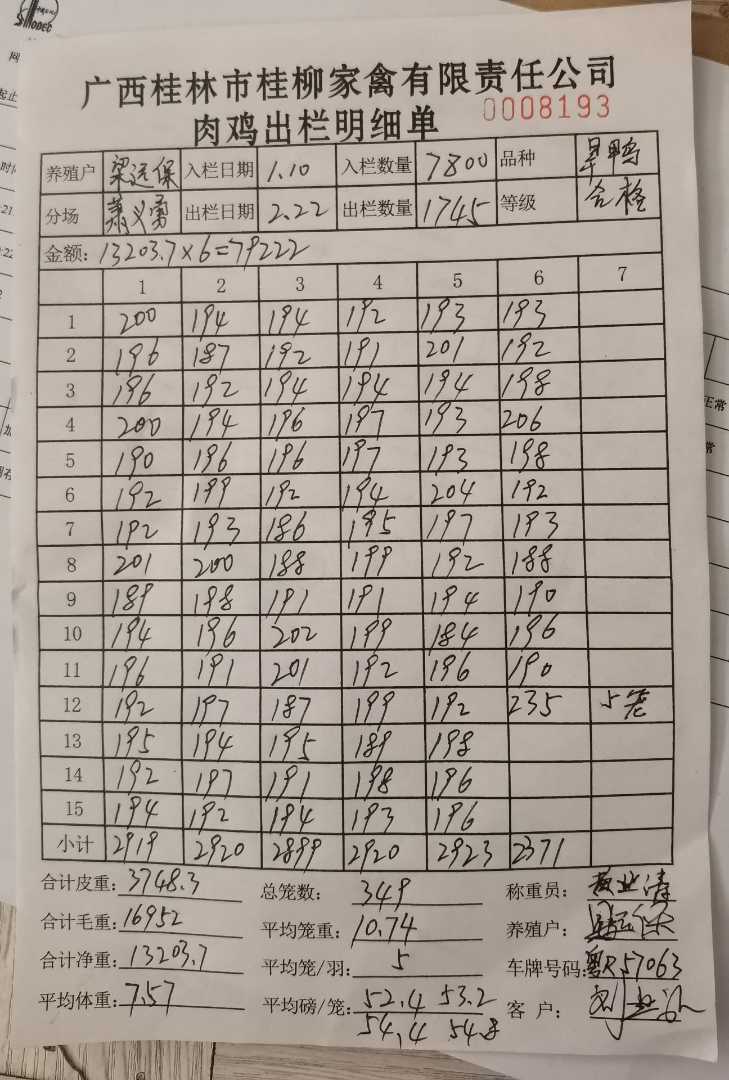 广西桂林市桂柳家禽有限责任公司
肉鸡出栏明细单 0008193
养殖户 梁远保 入栏日期 1.10 入栏数量 7800 品种 旱鸭
分场 萧义勇 出栏日期 2.22 出栏数量 1745 等级 合格
金额: 13203.7×6=79222
1 2 3 4 5 6 7
1 200 194 194 192 193 193
2 196 187 192 191 201 192
3 196 192 194 194 194 198
4 200 194 196 197 193 206
5 190 196 196 197 193 198
6 192 199 192 194 204 192
7 192 193 186 195 197 193
8 201 200 188 199 192 188
9 189 198 191 191 194 190
10 194 196 202 199 184 196
11 196 191 201 192 196 190
12 192 197 187 199 192 235 5笼
13 195 194 195 189 198
14 192 197 191 198 196
15 194 192 194 193 196
小计 2919 2920 2899 2920 2923 2371
合计皮重: 3748.3 总笼数: 349 称重员: 黄业清
合计毛重: 16952 平均笼重: 10.74 养殖户:
合计净重: 13203.7 平均笼/羽: 5 车牌号码: 粤R57063
平均体重: 7.57 平均磅/笼: 52.4 53.2 客 户:
54.4 54.8